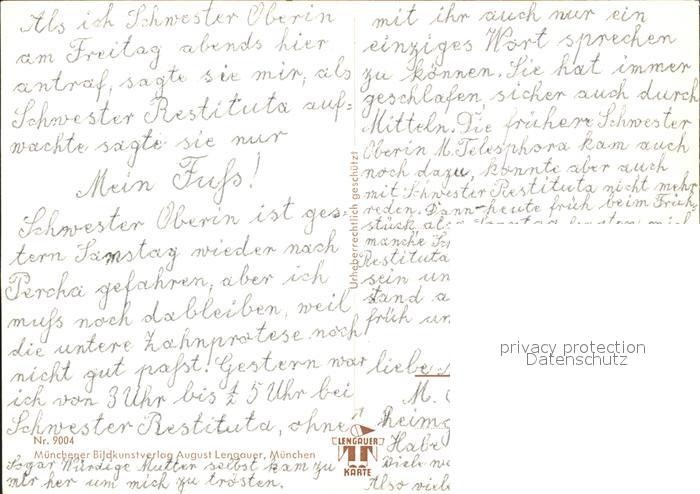 Als ich Schwester Oberin
am Freitag abends hier
antraf, sagte sie mir, als
Schwester Restituta auf=
wachte sagte sie nur
Mein Fuss!
Schwester Oberin ist ges-
tern Samstag wieder nach
Percha gefahren, aber ich
muß noch dableiben, weil
die untere Zahnprotese noch
nicht gut paßt! Gestern war
ich von 3 Uhr bis ½ 5 Uhr bei
Schwester Restituta, ohne
Nr. 9004
Münchener Bildkunstverlag August Lengauer, München
Sogar Würdige Mutter selbst kam zu
mir her um mich zu trösten.
Urheberrechtlich geschützt
LENGAUER
KARTE
mit ihr auch nur ein
einziges Wort sprechen
zu können. Sie hat immer
geschlafen, sicher auch durch
Mitteln. Die frühere Schwester
Oberin M. Telesphora kam auch
noch dazu, konnte aber auch
mit Schwester Restituta nicht mehr
reden. Dann heute früh beim Früh-
stück
manche
Restituta
sein un
stand a
früh un
liebe
M.
heim
Habe
Viele
Also viele
privacy protection
Datenschutz